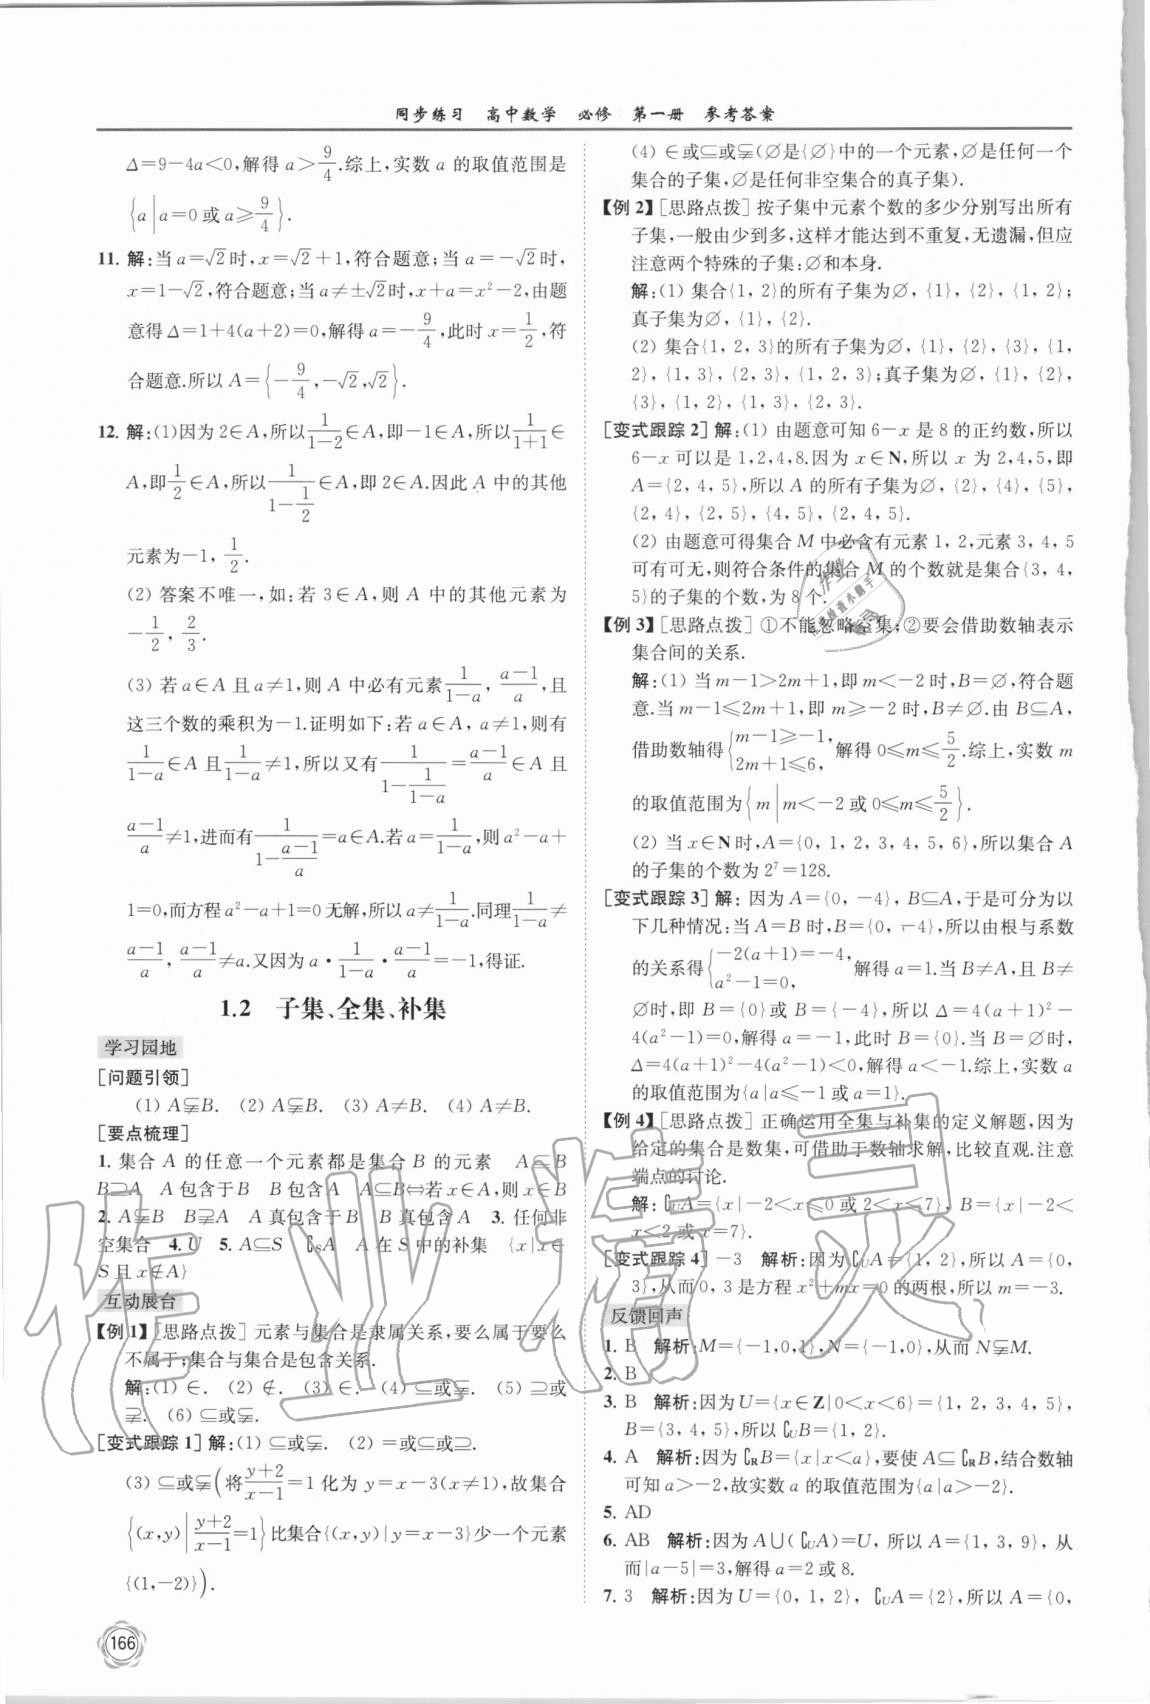 同步练习 高中数学 必修 第一册 参考答案
Δ=9-4a<0,解得 a>9/4.综上,实数 a 的取值范围是
{a|a=0 或 a≥9/4}.
11. 解:当 a=√2时,x=√2+1,符合题意;当 a=-√2时,
x=1-√2,符合题意;当 a≠±√2时,x+a=x²-2,由题
意得 Δ=1+4(a+2)=0,解得 a=-9/4,此时 x=1/2,符
合题意.所以 A={-9/4,-√2,√2}.
12. 解:(1)因为 2∈A,所以1/(1-2)∈A,即-1∈A,所以1/(1+1)∈
A,即1/2∈A,所以1/(1-1/2)∈A,即 2∈A.因此 A 中的其他
元素为-1, 1/2.
(2) 答案不唯一,如:若 3∈A,则 A 中的其他元素为
-1/2, 2/3.
(3) 若 a∈A 且 a≠1,则 A 中必有元素1/(1-a), (a-1)/a,且
这三个数的乘积为-1.证明如下:若 a∈A, a≠1,则有
1/(1-a)∈A 且1/(1-a)≠1,所以又有1/(1-1/(1-a))=(a-1)/a∈A 且
(a-1)/a≠1,进而有1/(1-(a-1)/a)=a∈A.若 a=1/(1-a),则 a²-a+
1=0,而方程 a²-a+1=0 无解,所以 a≠1/(1-a).同理1/(1-a)≠
(a-1)/a, (a-1)/a≠a.又因为 a·1/(1-a)·(a-1)/a=-1,得证.
1.2 子集、全集、补集
学习园地
[问题引领]
(1) A⫋B. (2) A⫋B. (3) A≠B. (4) A≠B.
[要点梳理]
1. 集合 A 的任意一个元素都是集合 B 的元素 A⊆B
B⊇A A 包含于 B B 包含 A A⊆B⇔若 x∈A,则 x∈B
2. A⫋B B⫌A A 真包含于 B B 真包含 A 3. 任何非
空集合 4. U 5. A⊆S ∁SA A 在 S 中的补集 {x|x∈
S 且 x∉A}
互动展台
【例 1】[思路点拨] 元素与集合是隶属关系,要么属于要么
不属于;集合与集合是包含关系.
解:(1) ∈. (2) ∉. (3) ∈. (4) ⊆或⫋. (5) ⊇或
⫌. (6) ⊆或⫋.
[变式跟踪 1] 解:(1) ⊆或⫋. (2) =或⊆或⊇.
(3) ⊆或⫋(将(y+2)/(x-1)=1 化为 y=x-3(x≠1),故集合
{(x,y)|(y+2)/(x-1)=1}比集合{(x,y)|y=x-3}少一个元素
{(1,-2)}).
166
(4) ∈或⊆或⫋(∅是{∅}中的一个元素,∅是任何一个
集合的子集,∅是任何非空集合的真子集).
【例 2】[思路点拨] 按子集中元素个数的多少分别写出所有
子集,一般由少到多,这样才能达到不重复,无遗漏,但应
注意两个特殊的子集:∅和本身.
解:(1) 集合{1, 2}的所有子集为∅, {1}, {2}, {1, 2};
真子集为∅, {1}, {2}.
(2) 集合{1, 2, 3}的所有子集为∅, {1}, {2}, {3}, {1,
2}, {1, 3}, {2, 3}, {1, 2, 3};真子集为∅, {1}, {2},
{3}, {1, 2}, {1, 3}, {2, 3}.
[变式跟踪 2] 解:(1) 由题意可知 6-x 是 8 的正约数,所以
6-x 可以是 1,2,4,8.因为 x∈N,所以 x 为 2,4,5,即
A={2, 4, 5},所以 A 的所有子集为∅, {2}, {4}, {5},
{2, 4}, {2, 5}, {4, 5}, {2, 4, 5}.
(2) 由题意可得集合 M 中必含有元素 1, 2,元素 3, 4, 5
可有可无,则符合条件的集合 M 的个数就是集合{3, 4,
5}的子集的个数,为 8 个.
【例 3】[思路点拨] ①不能忽略空集;②要会借助数轴表示
集合间的关系.
解:(1) 当 m-1>2m+1,即 m<-2 时,B=∅,符合题
意.当 m-1≤2m+1,即 m≥-2 时,B≠∅.由 B⊆A,
借助数轴得{m-1≥-1, 2m+1≤6, 解得 0≤m≤5/2.综上,实数 m
的取值范围为{m|m<-2 或 0≤m≤5/2}.
(2) 当 x∈N时,A={0, 1, 2, 3, 4, 5, 6},所以集合 A
的子集的个数为 2⁷=128.
[变式跟踪 3] 解: 因为 A={0, -4}, B⊆A,于是可分为以
下几种情况:当 A=B 时,B={0, -4},所以由根与系数
的关系得{-2(a+1)=-4, a²-1=0, 解得 a=1.当 B≠A,且 B≠
∅时,即 B={0}或 B={-4},所以 Δ=4(a+1)²-
4(a²-1)=0,解得 a=-1,此时 B={0}.当 B=∅时,
Δ=4(a+1)²-4(a²-1)<0,解得 a<-1.综上,实数 a
的取值范围为{a|a≤-1 或 a=1}.
【例 4】[思路点拨] 正确运用全集与补集的定义解题,因为
给定的集合是数集,可借助于数轴求解,比较直观.注意
端点的讨论.
解: ∁UA={x|-2<x≤0 或 2<x≤7}, B={x|-2<
x<2 或 x=7}.
[变式跟踪 4] -3 解析:因为∁UA={1, 2},所以 A={0,
3},从而 0, 3 是方程 x²+mx=0 的两根,所以 m=-3.
反馈回声
1. B 解析:M={-1,0,1}, N={-1,0},从而 N⫋M.
2. B
3. B 解析:因为 U={x∈Z|0<x<6}={1, 2, 3, 4, 5},
B={3, 4, 5},所以 ∁UB={1, 2}.
4. A 解析:因为∁RB={x|x<a},要使 A⊆∁RB,结合数轴
可知 a>-2,故实数 a 的取值范围为{a|a>-2}.
5. AD
6. AB 解析:因为 A∪(∁UA)=U, 所以 A={1, 3, 9}, 从
而|a-5|=3,解得 a=2 或 8.
7. 3 解析:因为 U={0, 1, 2}, ∁UA={2},所以 A={0,
作业精灵